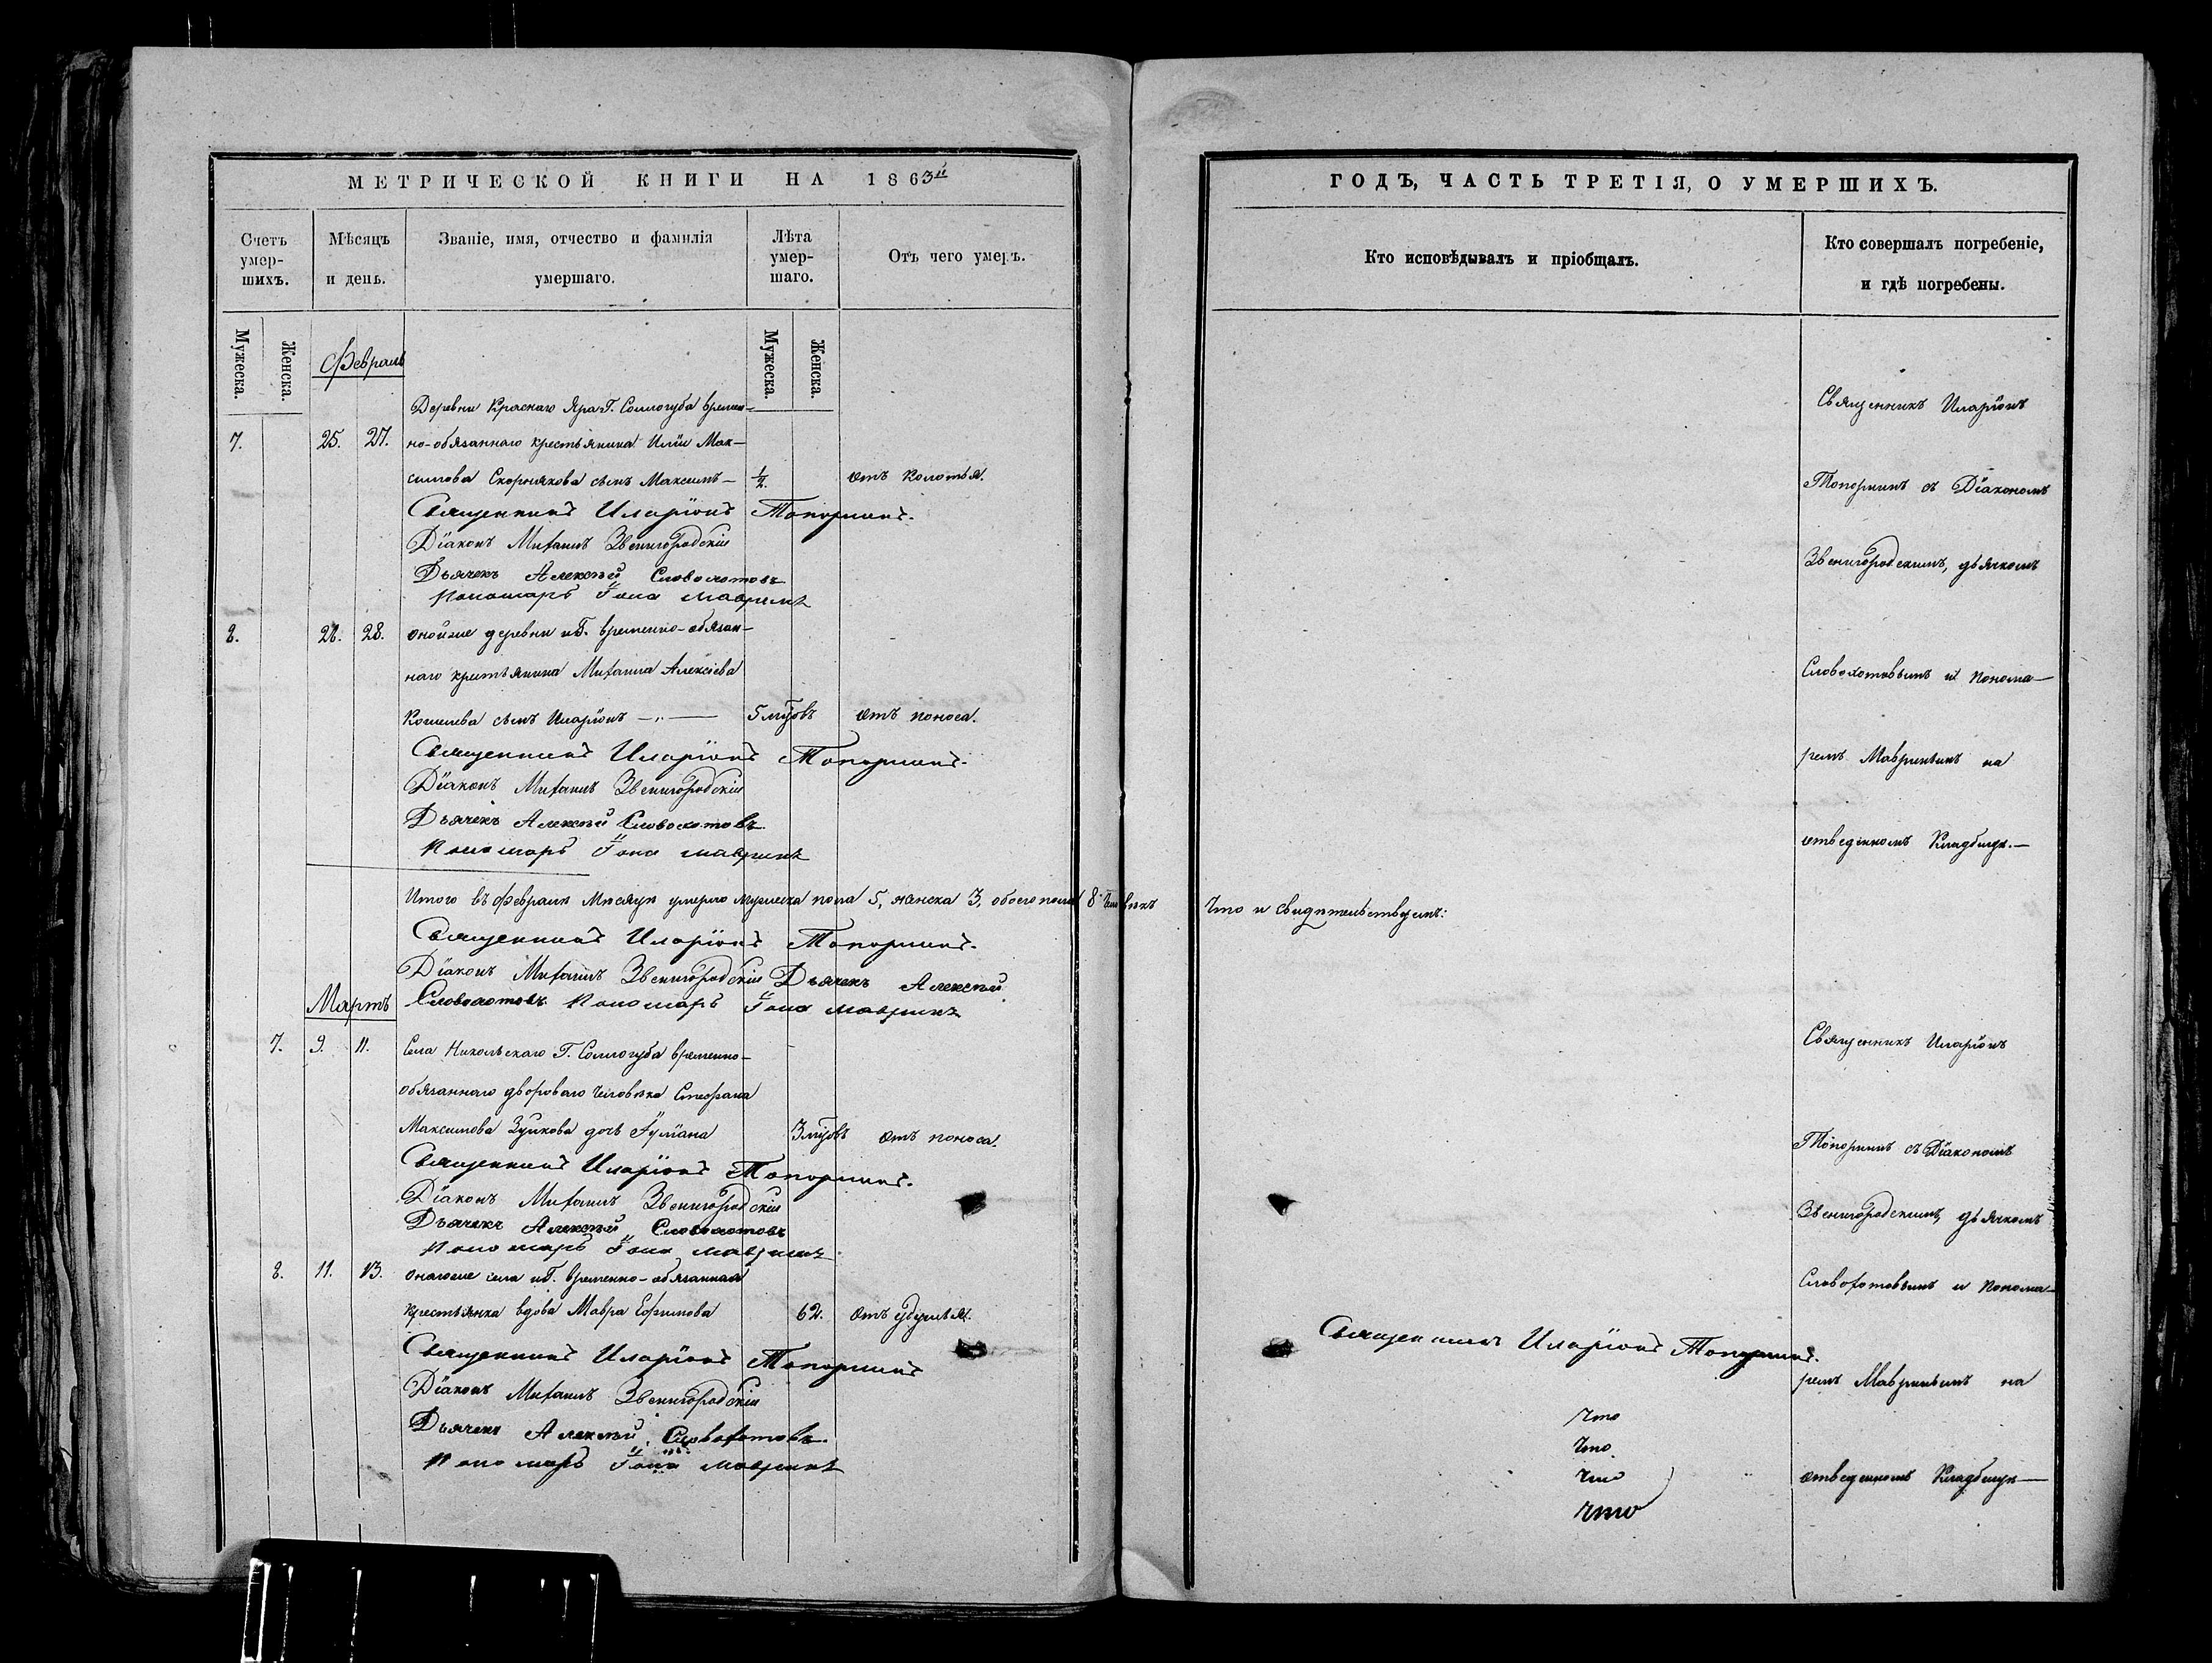 МЕТРИЧЕСКОЙ КНИГИ НА 1863й
Счетъ умерших.
Мѣсяцъ и день.
Званіе, имя, отчество и фамилія умершаго.
Лѣта умершаго.
Отъ чего умеръ.
Мужеска.
Женска.
Мужеска.
Женска.
Февраль
Деревни Краснаго Яра Г. Соллогуба времен-
7. 25. 27. но-обязаннаго крестьянина Иліи Мак-
симова Скорнякова сынъ Максимъ — ½. отъ колотья.
Священникъ Иларіонъ Топорнинъ.
Діаконъ Михаилъ Звенигородскій
Дьячекъ Алексѣй Словохотовъ
Пономарь Іона Мавринъ
8. 26. 28. оной же деревни и Г. временно-обязан-
наго крестьянина Михаила Алексіева
Кошелева сынъ Иларіонъ —„— 5 мцовъ отъ поноса.
Священникъ Иларіонъ Топорнинъ.
Діаконъ Михаилъ Звенигородскій
Дьячекъ Алексѣй Словохотовъ.
Пономарь Іона Мавринъ
Итого въ Февралѣ мѣсяцѣ умерло мужеска пола 5, женска 3, обоего пола 8. человѣкъ
Священникъ Иларіонъ Топорнинъ.
Діаконъ Михаилъ Звенигородскій Дьячекъ Алексѣй
Словохотовъ Пономарь Іона Мавринъ
Мартъ
7. 9. 11. Села Никольскаго Г. Соллогуба временно-
обязаннаго двороваго человѣка Стефана
Максимова Зуйкова дочь Іуліана 3 мцовъ отъ поноса.
Священникъ Иларіонъ Топорнинъ.
Діаконъ Михаилъ Звенигородскій
Дьячекъ Алексѣй Словохотовъ
Пономарь Іона Мавринъ.
8. 11. 13. Онаго же села и Г. временно-обязанная
крестьянка вдова Мавра Ефимова 62. отъ удушья.
Священникъ Иларіонъ Топорнинъ
Діаконъ Михаилъ Звенигородскій
Дьячекъ Алексѣй Словохотовъ.
Пономарь Іона Мавринъ
ГОДЪ, ЧАСТЬ ТРЕТІЯ, О УМЕРШИХЪ.
Кто исповѣдывалъ и пріобщалъ.
Кто совершалъ погребеніе,
и гдѣ погребены.
Священникъ Иларіонъ
Топорнинъ съ Діакономъ
Звенигородскимъ, дьячкомъ
Словохотовымъ и понома-
ремъ Мавринымъ на
отведенномъ Кладбищѣ.—
Что и свидѣтельствуемъ:
Священникъ Иларіонъ
Топорнинъ съ Діакономъ
Звенигородскимъ, дьячкомъ
Словохотовымъ и понома-
Священникъ Иларіонъ Топорнинъ.
ремъ Мавринымъ на
что
что
что
что
отведенномъ Кладбищѣ—